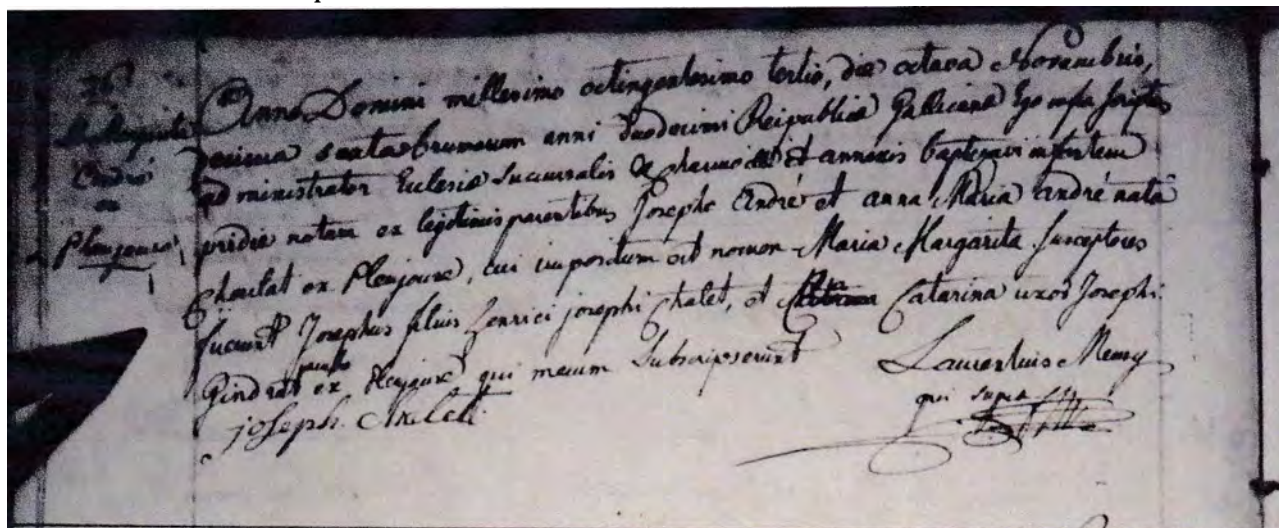 26
M. Margarita
André
ex
Plenjouse
Anno Domini millesimo octingentesimo tertio, die octava Novembris,
decima sexta brumarum anni duodecimi Reipublicæ Gallicanæ Ego infra scriptus
administrator Ecclesiæ Succursalis de charmoille et annexis baptizavi infantem
pridie natam ex legitimis parentibus Josepho André et anna Maria andré nata
Choulat ex Plenjouse, cui impositum est nomen Maria Margarita. Susceptores
fuerunt Josephus filius henrici josephi Chalet, et Catarina uxor Josephi
Gindrat ex Plenjouse qui mecum Subscripserunt
joseph Chelet
Laurentius Memy
qui supra